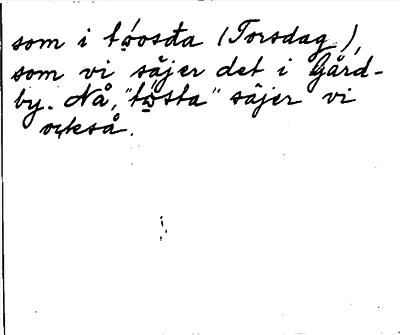 som i tó̤osđa (Torsdag),
som vi säjer det i Gård-
by. Nå, "tó̤sta" säjer vi
också.